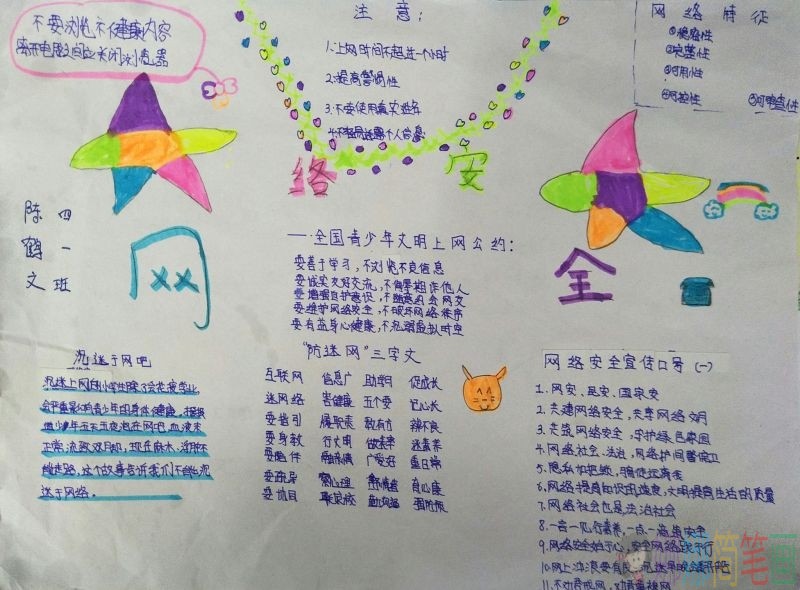 不要浏览不健康内容
离开电脑之间应关闭浏览器
注意:
1.上网时间不超过一个小时
2.提高警惕性
3.不要使用真实姓名
4.不轻易泄露个人信息
网络特征
①稳密性
②完整性
③可用性
④可控性
⑤可审查性
网
络
安
全
陈鹤文
四一班
——全国青少年文明上网公约:
要善于学习,不浏览不良信息
要诚实友好交流,不侮辱欺诈他人
要增强自护意识,不随意约会网友
要维护网络安全,不破坏网络秩序
要有益身心健康,不沉溺虚拟时空
沉迷于网吧
沉迷上网的小学生除了会荒废学业
会严重影响青少年的身体健康,据报
正常,流致双目
能走路,这个故事告诉我们不能沉
迷于网络。
"防迷网"三字文
互联网 信息广 助学习 促成长
迷网络 害健康 五个要 记心长
要指引 履职责 教有方 辨不良
要身教 行文明 做表率 迷素养
要陪伴 融亲情 广爱好 重日常
要疏导 察心理 舒情绪 育心康
要协同 联家校 勤沟通 强预防
网络安全宣传口号(一)
1.网安、民安、国家安
2.共建网络安全,共享网络文明
3.共筑网络安全,守护绿色家园
4.网络社会,法治,网络护网警保卫
5.隐私加把锁,骗徒远离我
6.网络提高知识的速度,文明提高生活的质量
7.网络社会也是法治社会
8.一言一见行素养,一点一滴筑安全
9.网络安全始于心,安全网络践于行
10.网上冲浪要有度